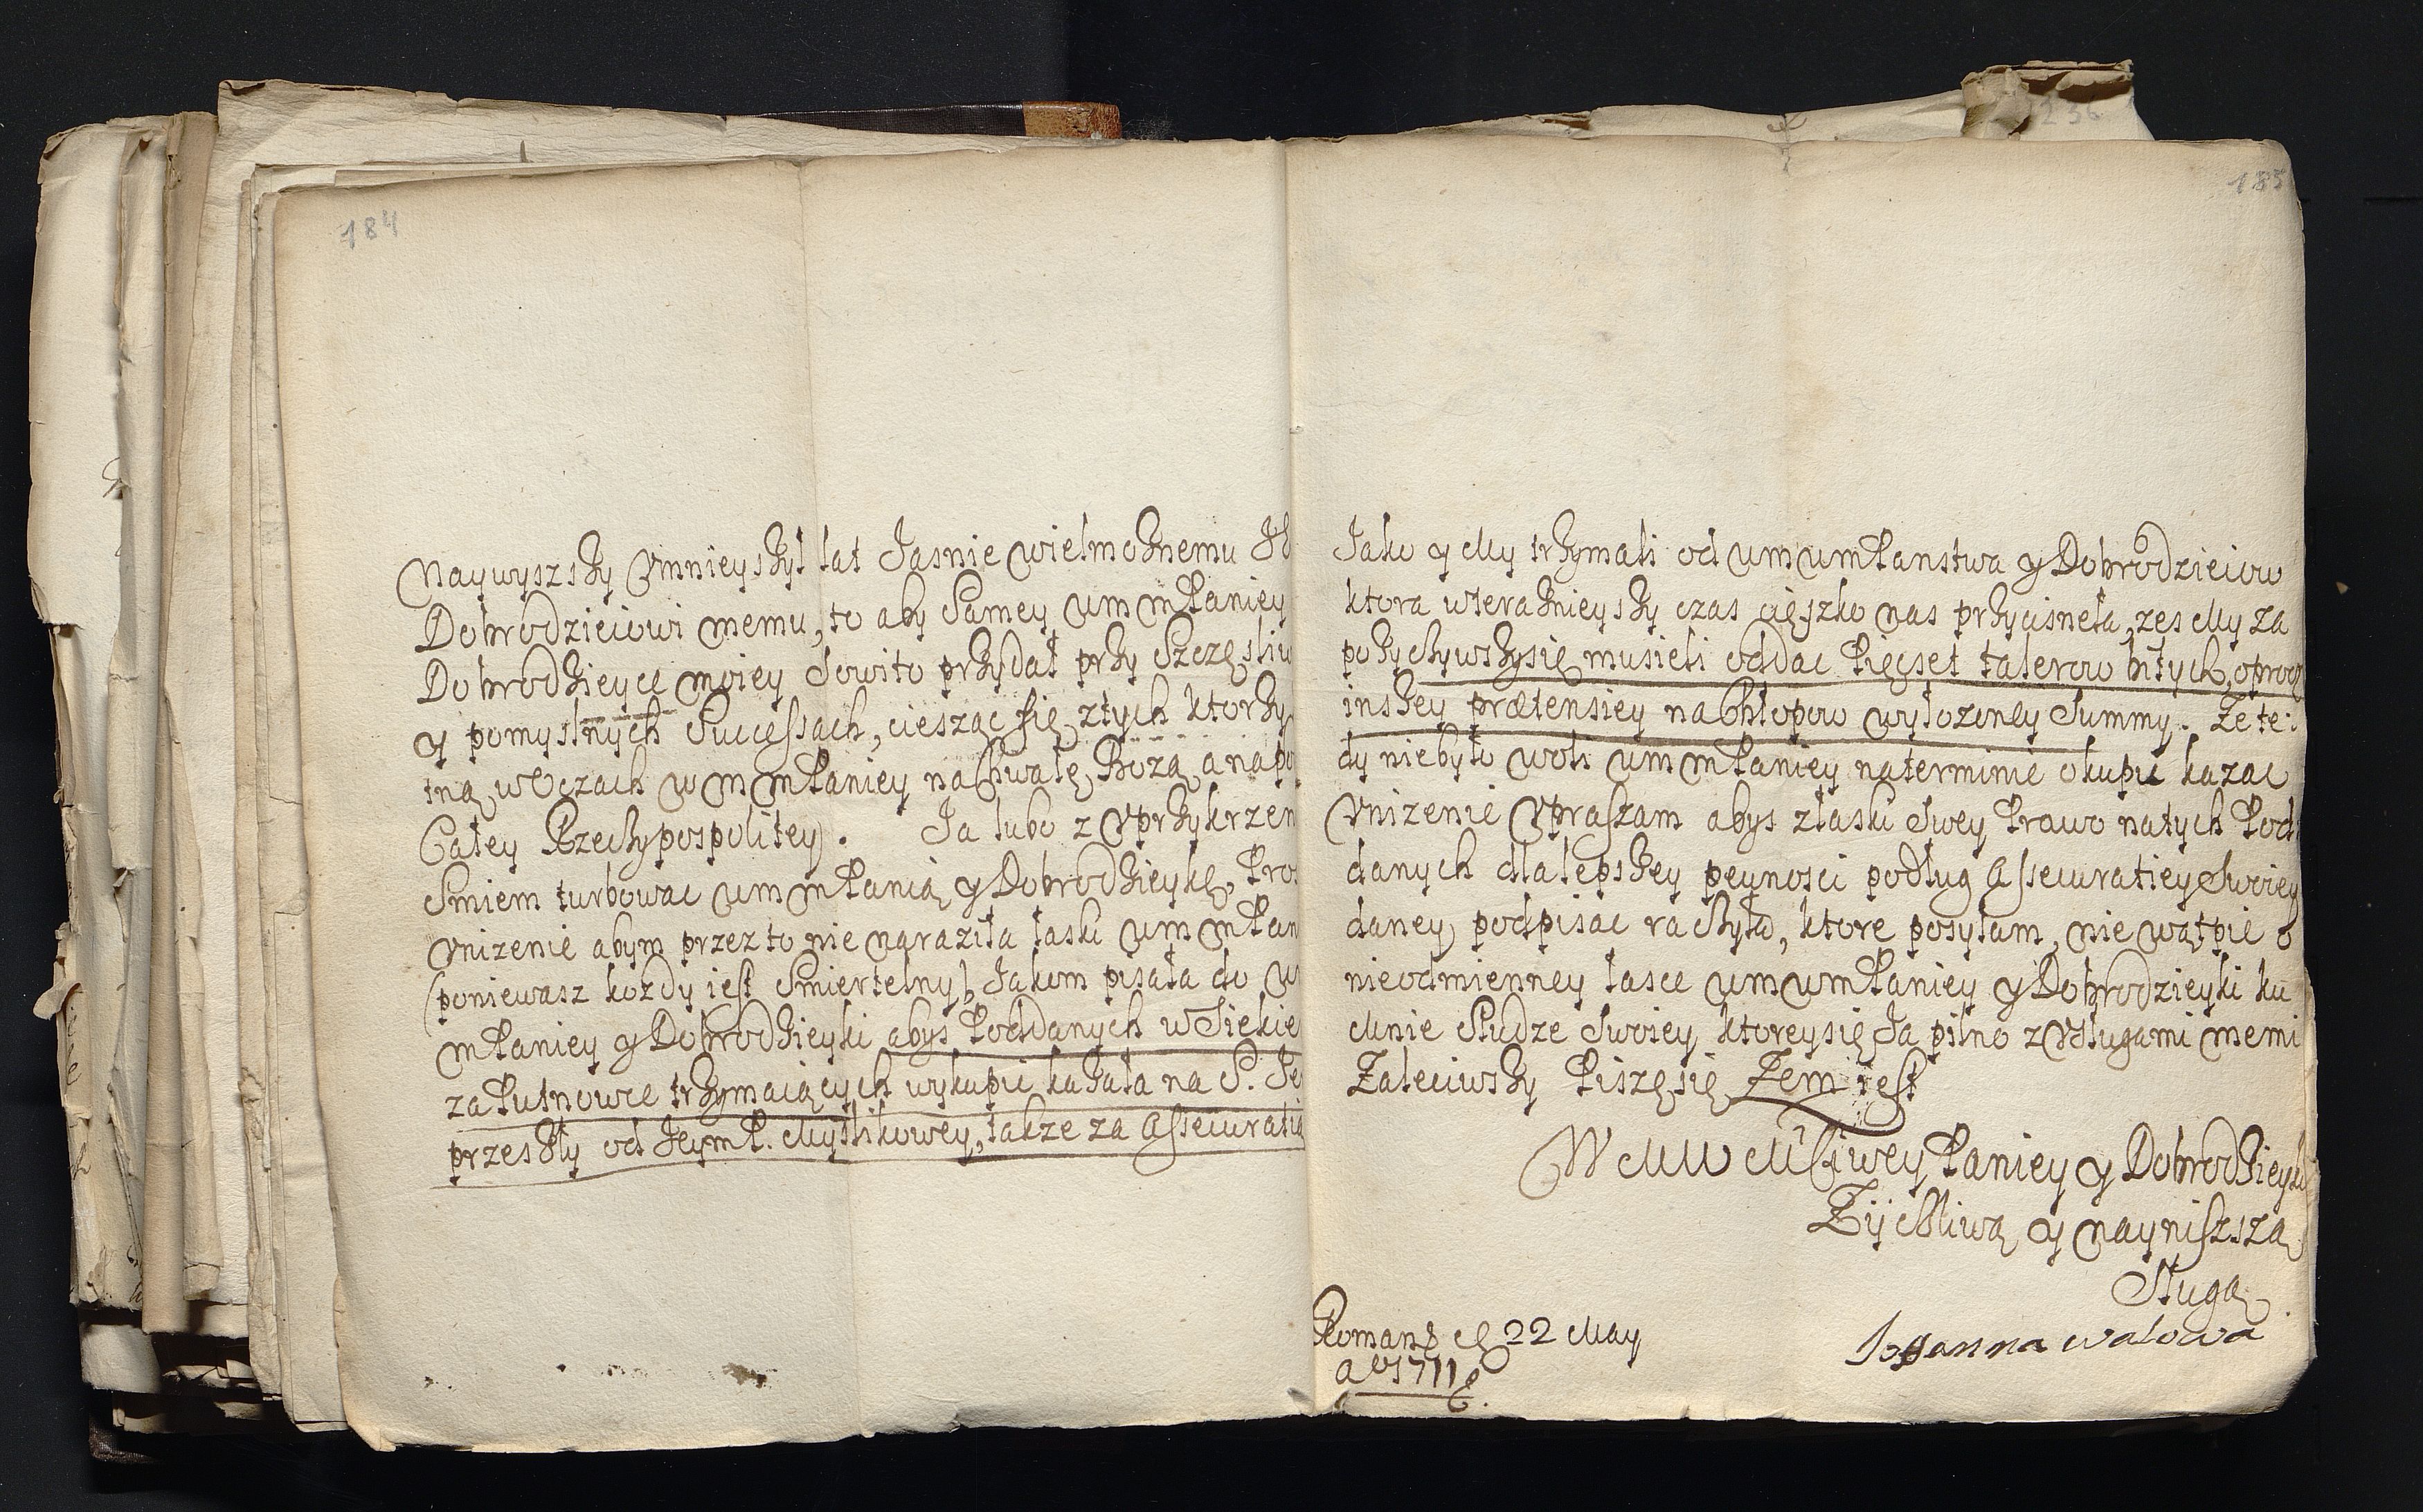 184
Naywyszszy Vmnieyszył lat Jasnie wielmoznemu
Dobrodzieiowi memu, to aby Samey wm mPaniey
Dobrodzieyce moiey Sowito przydał przy Szczęsliw
y pomyslnych Successach, ciesząc się ztych ktorzy
tną wOczach wm mPaniey na Chwałę Bozą a napo
Całey Rzeczypospolitey. Ja lubo z Vprzykrzen
Smiem turbowac wm mPanią y Dobrodzieykę, Pros
Vnizenie abym przez to nie naraziła łaski wm mPan
(poniewasz kozdy iest Smiertelny) Jakom pisała do w
mPaniey y Dobrodzieyki abys Poddanych wSiekie
za Putnowce trzymaiących wykupic kazała na S. Je
przeszły od Jeym P. Myslikowey, takze za Assecuratią
185
Jako y My trzymali od wm wm Panstwa y Dobrodzieiow
ktora wteraznieyszy czas cięszko nas przycisneła, zes My za
pozyczywszysię musieli oddac Pięcset talerow bitych, oprocz
inszey prætensiey na Chłopow wyłozoney Summy. Ze te:
dy niebyło woli wm mPaniey naterminie okupic kazac
Vnizenie Vpraszam abys złaski Swey Prawo natych Pod:
danych dla lepszey pewnosci podług Assecuratiey Swoiey
daney podpisac raczyła, ktore posyłam, nie wątpie o
nieodmienney łasce wm wm Paniey y Dobrodzieyki ku
Mnie Słudze Swoiey ktoreysię Ja pilno z Vsługami memi
Zaleciwszy Piszęsię Zem iest
W MM Mściwey Paniey y Dobrodzieyki
Zyczliwą y nayniszszą
Sługą
Romanz 22 May
Aº 1711
Joanna walowa